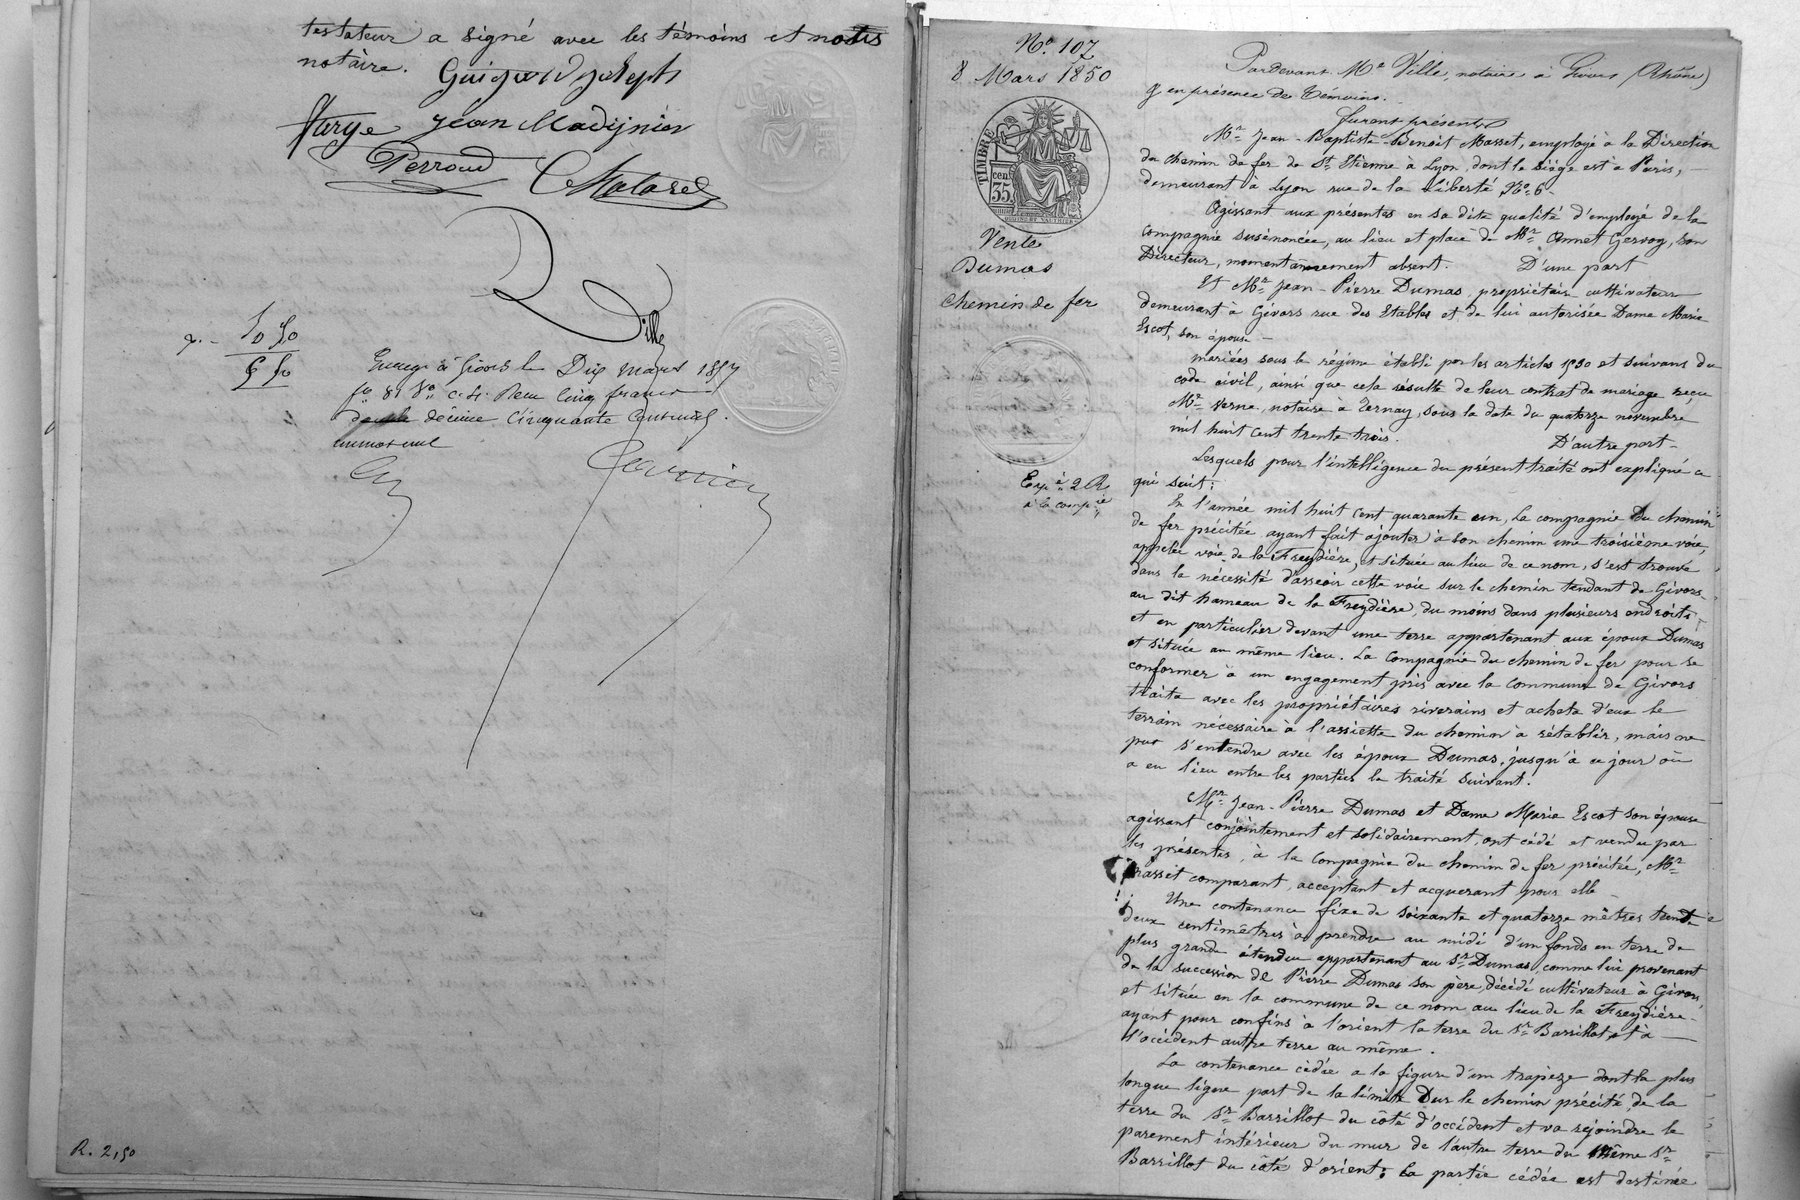 testateur a signé avec les témoins et notis
notaire. Guiguard Joseph
Farge Jéan Madignier
Perroud C Matares
Ville
10 50
5 50
Enreg. à Givors le Dix mars 1857
fo 81 Vo c. 4. Reçu cinq francs
double décime Cinquante Centimes.
R. 2,50
No 107
8 Mars 1850
TIMBRE
35 cent
Vente
Dumas
chemin de fer
Exp.on à 2 R
à la comp.ie
Pardevant Me Ville, notaire à Givors (Rhône)
& en présence de témoins.
furent présents
Mr Jean-Baptiste-Benoit Masset, employé à la Direction
du chemin de fer de St Etienne à Lyon, dont le siège est à Paris,
demeurant à Lyon rue de la Liberté No 6
Agissant aux présentes en sa dite qualité d'employé de la
compagnie susénoncée, au lieu et place de Mr Annet Gervoy, son
Directeur, momentanement absent. D'une part
Et Mr Jean-Pierre Dumas, propriétaire cultivateur
demeurant à Givors rue des Etables et de lui autorisée Dame Marie
Escot, son épouse
mariées sous le régime établi par les articles 1530 et suivans du
code civil, ainsi que cela résulte de leur contrat de mariage reçu
Me Verne, notaire à Ternay, sous la date du quatorze novembre
mil huit cent trente trois. D'autre part
Lesquels pour l'intelligence du présent traité ont expliqué ce
qui suit:
En l'année mil huit cent quarante un, La compagnie du chemin
de fer précitée, ayant fait ajouter à son chemin une troisième voie,
appelée voie de la Freydière, et située au lieu de ce nom, s'est trouvé
dans la nécessité d'asseoir cette voie sur le chemin tendant de Givors
au dit hameau de la Freydière, du moins dans plusieurs endroits
et en particulier devant une terre appartenant aux époux Dumas
et située au même lieu. La Compagnie du chemin de fer pour se
conformer à un engagement pris avec la commune de Givors
traita avec les propriétaires riverains et acheta d'eux le
terrain nécessaire à l'assiette du chemin à rétablir, mais ne
put s'entendre avec les époux Dumas, jusqu'à ce jour où
a eu lieu entre les parties le traité suivant.
Mr Jean-Pierre Dumas et Dame Marie Escot son épouse
agissant conjointement et solidairement, ont cédé et vendu par
les présentes, à la Compagnie du chemin de fer précitée, Mr
Masset comparant, acceptant et acquerant pour elle
Une contenance fixe de soixante et quatorze mètres trente
deux centimètres à prendre au midi d'un fonds en terre de
plus grande étendue appartenant au Sr Dumas, comme lui provenant
de la succession de Pierre Dumas son père, décédé cultivateur à Givors,
et située en la commune de ce nom au lieu de la Freydière
ayant pour confins à l'orient la terre du Sr Barrillot et à
l'occident autre terre au même.
La contenance cédée a la figure d'un trapèze dont la plus
longue ligne part de la limite sur le chemin précité, de la
terre du Sr Barrillot du côté d'occident et va rejoindre le
parement intérieur du mur de l'autre terre du même Sr
Barrillot du côté d'orient; La partie cédée est destinée